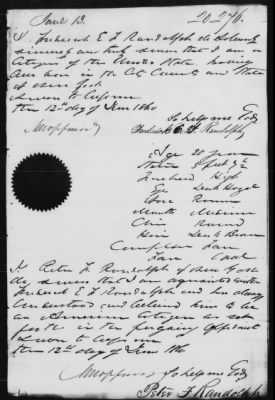 June 12. 20276.
I, Frederick E. F. Randolph do solemnly
sincerely and truly swear that I am a
Citizen of the United States, having
been born in the City County and State
of New York
Sworn to before
the 12th day of June 1860
So help me God
Frederick E. F. Randolph
Age 20 years
Stature 5 feet
Forehead High
Eyes Dark Hazel
Nose Roman
Mouth Medium
Chin Round
Hair Dark Brown
Complexion Fair
Face Oval
I, Peter F. Randolph of New York
do swear that I am acquainted with
Frederick E. F. Randolph and has always
understood and believed him to be
an American Citizen as set
forth in the foregoing affidavit
Sworn to before
the 12th day of June 1860
So help me God
Peter F. Randolph